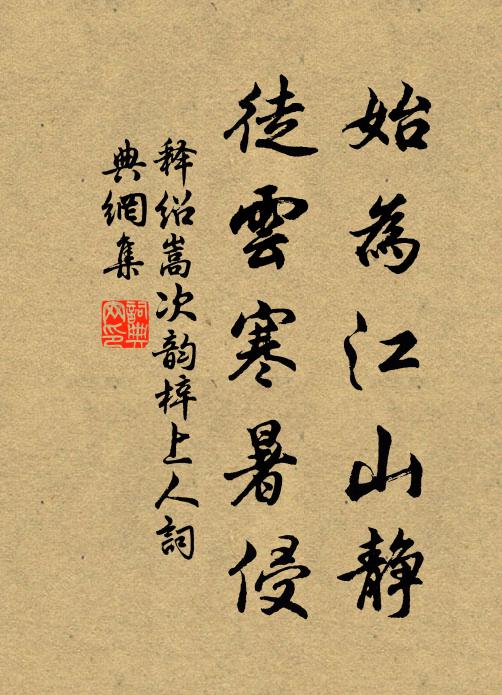 始為江山靜
徒雲寒暑侵
釋紹嵩次韵梓上人詞
典網集
詞典網印